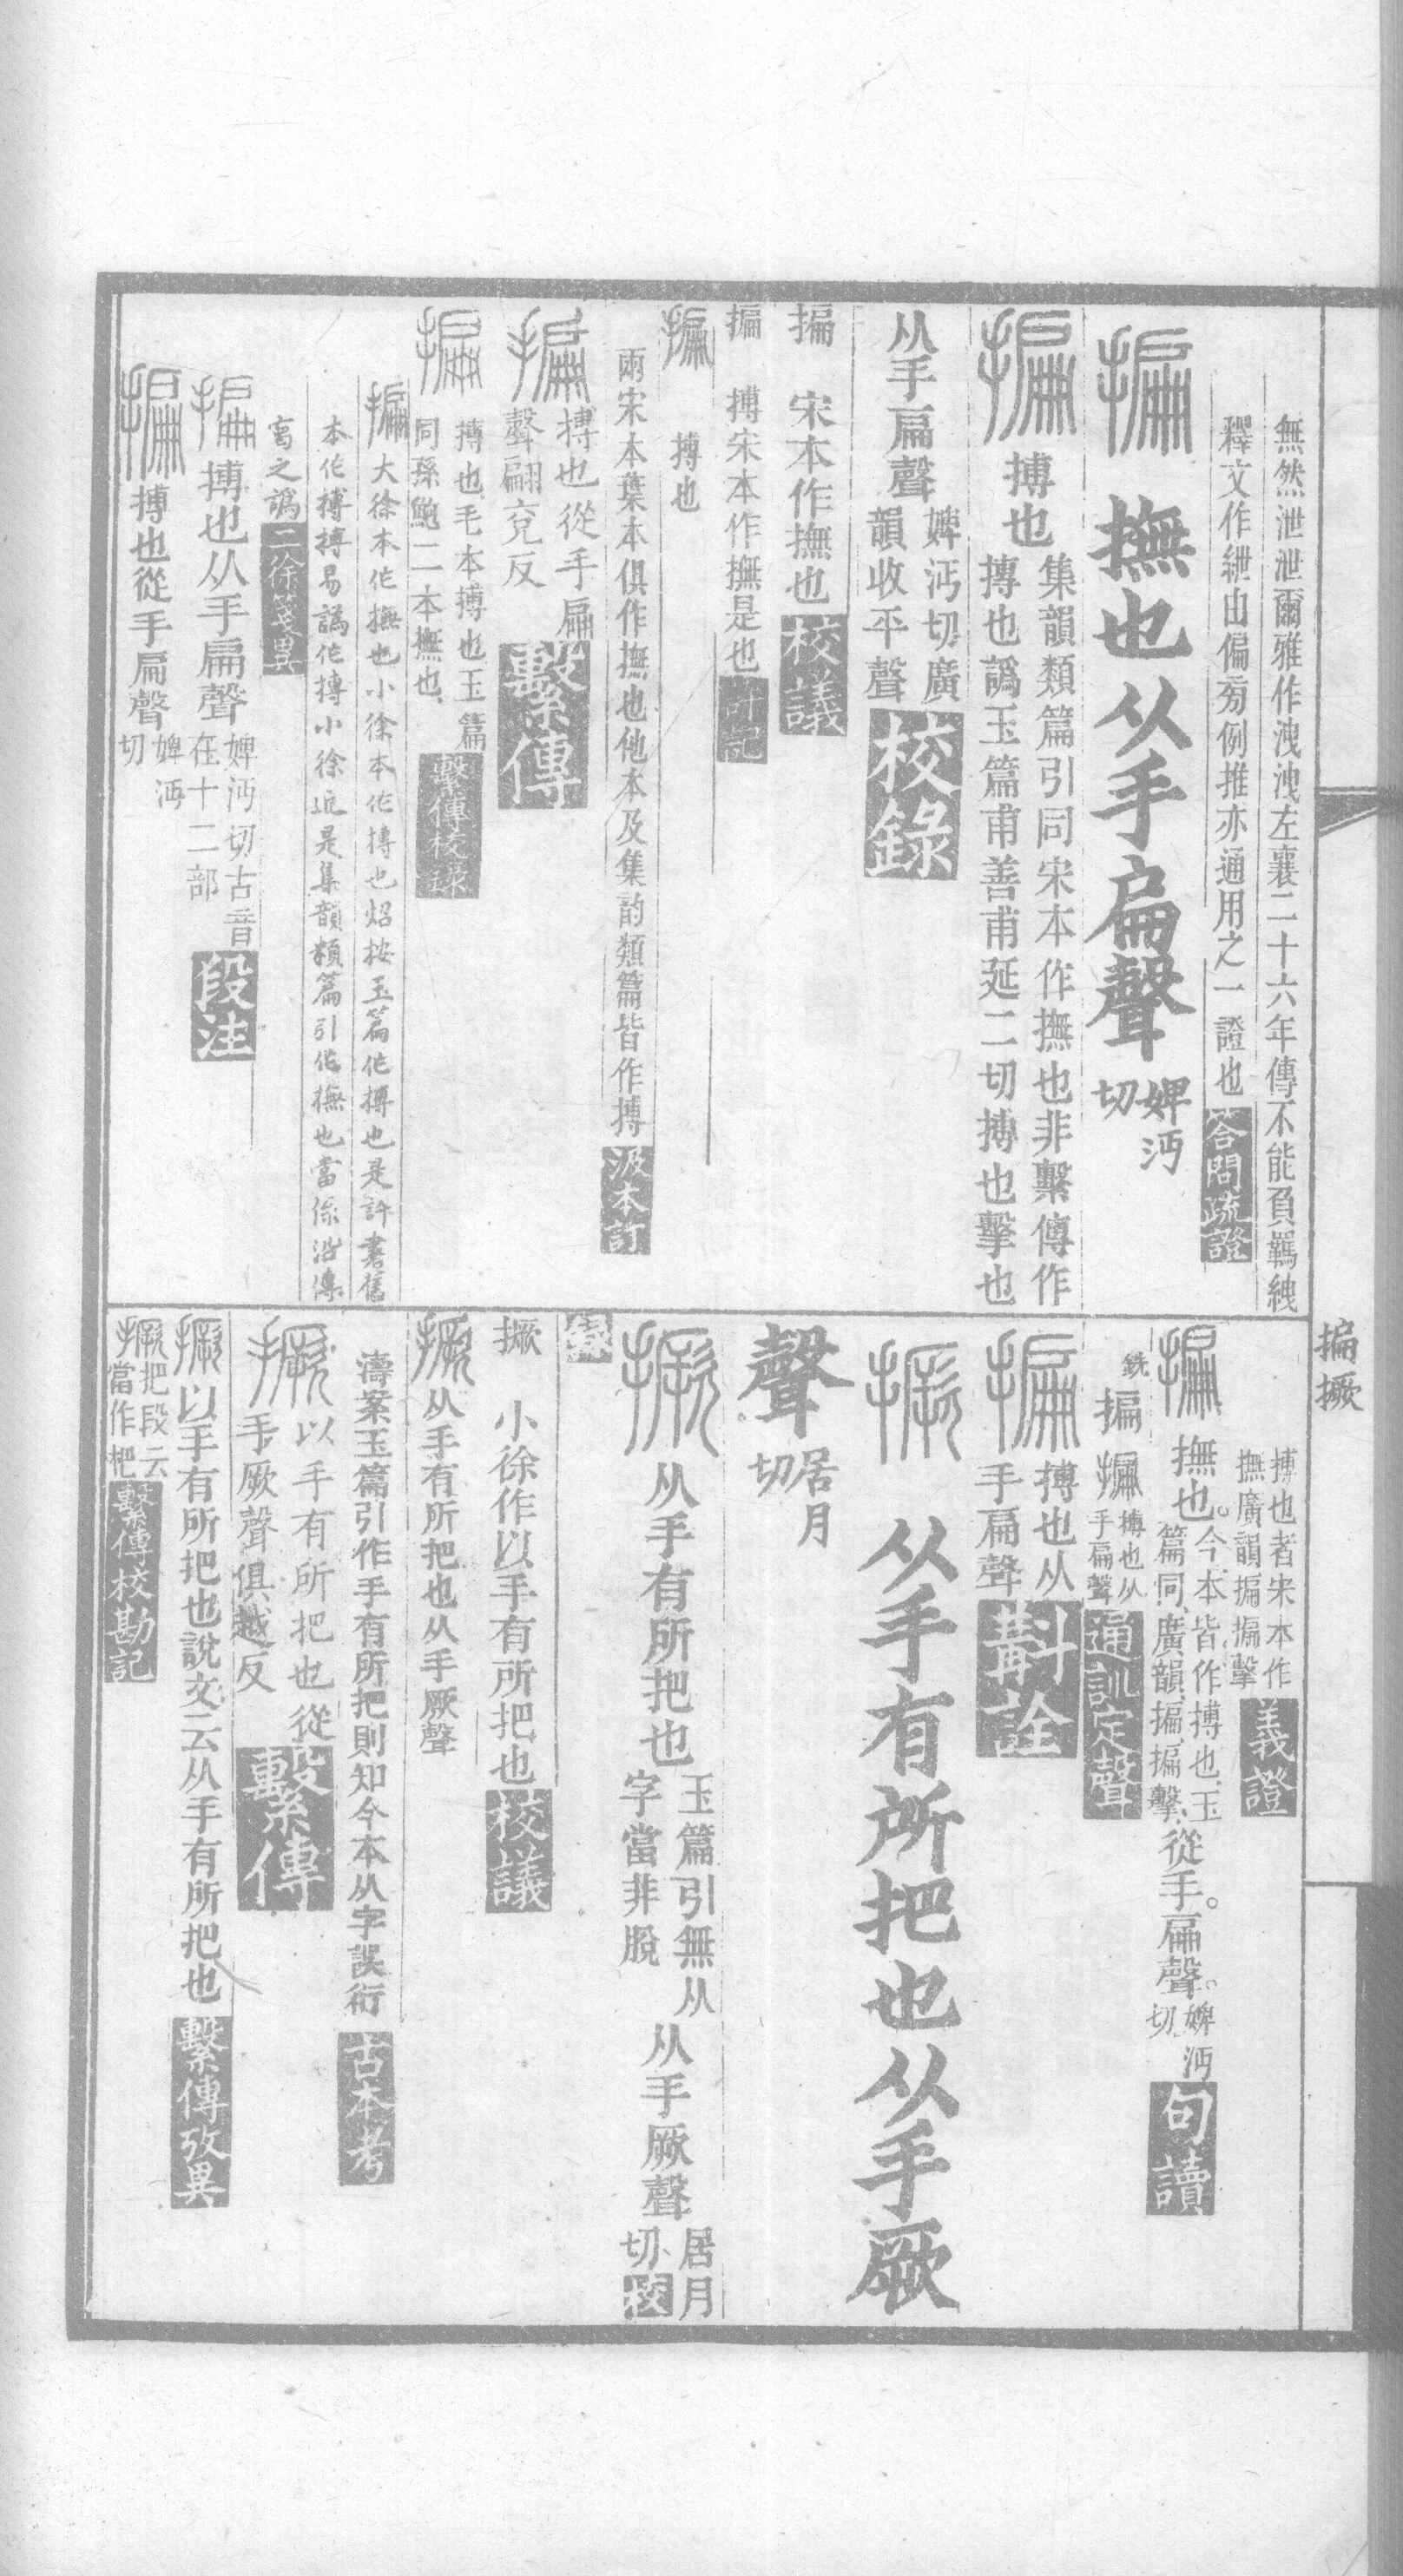 無然泄泄爾雅作洩洩左襄二十六年傳不能負羈絏
釋文作紲由偏㫄例推亦通用之一證也答問疏證
揙撫也从手扁聲婢沔切
揙搏也集韻類篇引同宋本作撫也非繫傳作
摶也譌玉篇甫善甫延二切搏也擊也
从手扁聲婢沔切廣韻收平聲校錄
揙宋本作撫也校議
揙搏宋本作撫是也
揙搏也
兩宋本葉本俱作撫也他本及集韵類篇皆作搏汲本訂
揙摶也從手扁聲翩兗反繫傳
揙摶也毛本搏也玉篇同孫鮑二本撫也繫傳校錄
揙大徐本作撫也小徐本作摶也炤按玉篇作搏也是許書舊
本作搏搏易譌作摶小徐近是集韻類篇引作撫也當係沿傳
寫之譌二徐箋異
揙搏也从手扁聲婢沔切古音在十二部段注
揙搏也從手扁聲婢沔切
搏也者宋本作撫廣韻揙揙擊義證
揙撫也。今本皆作搏也、玉篇同、廣韻、揙、揙擊、從手。扁聲。婢沔切句讀
銑揙揙搏也从手扁聲通訓定聲
揙搏也从手扁聲斠詮
撅从手有所把也从手厥
聲居月切
撅从手有所把也玉篇引無从字當非脫从手厥聲居月切校
錄
撅小徐作以手有所把也校議
撅从手有所把也从手厥聲
濤案玉篇引作手有所把則知今本从字誤衍古本考
撅以手有所把也從手厥聲俱越反繫傳
撅以手有所把也說文云从手有所把也繫傳攷異
撅把段云當作杷繫傳校勘記
揙撅